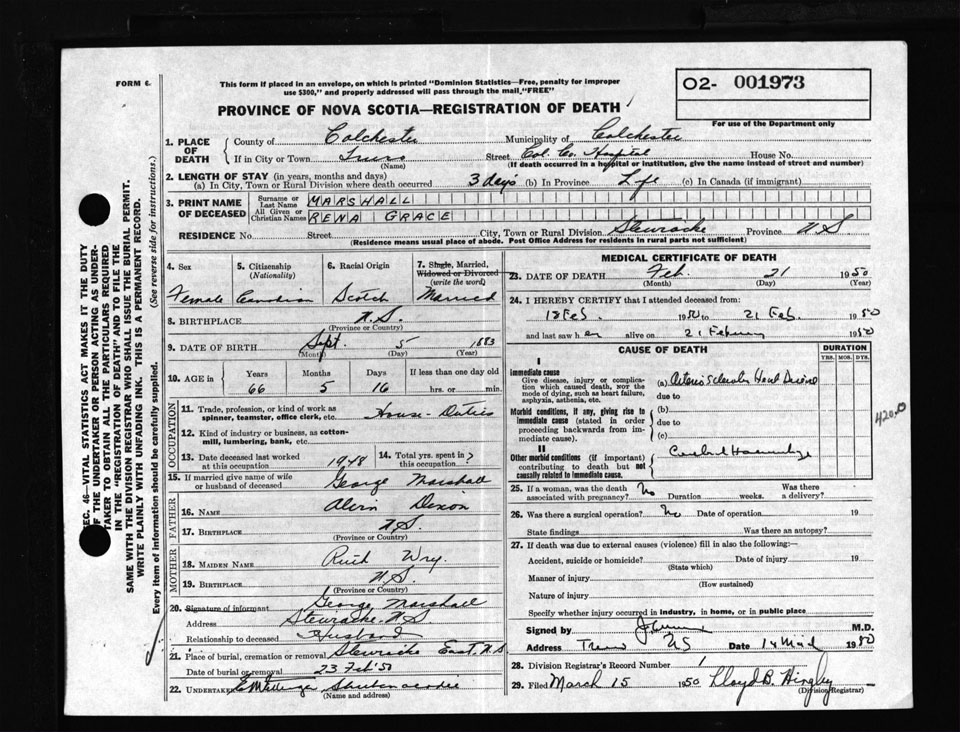 FORM 6.
This form if placed in an envelope, on which is printed "Dominion Statistics—Free, penalty for improper
use $300," and properly addressed will pass through the mail, "FREE"
02- 001973
For use of the Department only
PROVINCE OF NOVA SCOTIA—REGISTRATION OF DEATH
1. PLACE OF DEATH County of Colchester Municipality of Colchester
If in City or Town Truro (Name) Street Col. Co. Hospital House No.
(If death occurred in a hospital or institution, give the name instead of street and number)
2. LENGTH OF STAY (in years, months and days)
(a) In City, Town or Rural Division where death occurred 3 days (b) In Province Life (c) In Canada (if immigrant)
3. PRINT NAME OF DECEASED Surname or Last Name MARSHALL
All Given or Christian Names RENA GRACE
RESIDENCE No. Street City, Town or Rural Division Stewiacke Province N S
(Residence means usual place of abode. Post Office Address for residents in rural parts not sufficient)
4. Sex Female
5. Citizenship (Nationality) Canadian
6. Racial Origin Scotch
7. Single, Married, Widowed or Divorced (write the word) Married
8. BIRTHPLACE N.S.
(Province or Country)
9. DATE OF BIRTH Sept. 5 1883
(Month) (Day) (Year)
10. AGE in Years Months Days If less than one day old
66 5 16 hrs. or min.
OCCUPATION
11. Trade, profession, or kind of work as spinner, teamster, office clerk, etc. House-Duties
12. Kind of industry or business, as cotton-mill, lumbering, bank, etc.
13. Date deceased last worked at this occupation 1948 14. Total yrs. spent in this occupation ?
15. If married give name of wife or husband of deceased George Marshall
FATHER
16. NAME Alvin Dixon
17. BIRTHPLACE N.S.
(Province or Country)
MOTHER
18. MAIDEN NAME Ruth Wry
19. BIRTHPLACE N.S.
(Province or Country)
20. Signature of informant George Marshall
Address Stewiacke N.S
Relationship to deceased Husband
21. Place of burial, cremation or removal Stewiacke East. N.S
Date of burial or removal 23 Feb '50
22. Undertaker
(Name and address)
MEDICAL CERTIFICATE OF DEATH
23. DATE OF DEATH Feb. 21 1950
(Month) (Day) (Year)
24. I HEREBY CERTIFY that I attended deceased from:
18 Feb. 1950 to 21 Feb. 1950
and last saw her alive on 21 February 1950
CAUSE OF DEATH DURATION
YRS. MOS. DYS.
I
Immediate cause
Give disease, injury or complication which caused death, not the mode of dying, such as heart failure, asphyxia, asthenia, etc.
(a) Arterio Sclerotic Heart Disease
due to
Morbid conditions, if any, giving rise to immediate cause (stated in order proceeding backwards from immediate cause).
(b)
due to
(c)
420.0
II
Other morbid conditions (if important) contributing to death but not causally related to immediate cause.
Cerebral Haemorrhage
25. If a woman, was the death associated with pregnancy? No Duration weeks. Was there a delivery?
26. Was there a surgical operation? No Date of operation 19
State findings Was there an autopsy?
27. If death was due to external causes (violence) fill in also the following:—
Accident, suicide or homicide? Date of injury 19
(State which)
Manner of injury
(How sustained)
Nature of injury
Specify whether injury occurred in industry, in home, or in public place
Signed by M.D.
Address Truro NS Date 14 1950
28. Division Registrar's Record Number 1
29. Filed March 15 1950 Lloyd B. Hingley
(Division Registrar)
SEC. 46—VITAL STATISTICS ACT MAKES IT THE DUTY
OF THE UNDERTAKER OR PERSON ACTING AS UNDER-
TAKER TO OBTAIN ALL THE PARTICULARS REQUIRED
IN THE "REGISTRATION OF DEATH" AND TO FILE THE
SAME WITH THE DIVISION REGISTRAR WHO SHALL ISSUE THE BURIAL PERMIT.
WRITE PLAINLY WITH UNFADING INK. THIS IS A PERMANENT RECORD.
Every item of information should be carefully supplied. (See reverse side for instructions.)